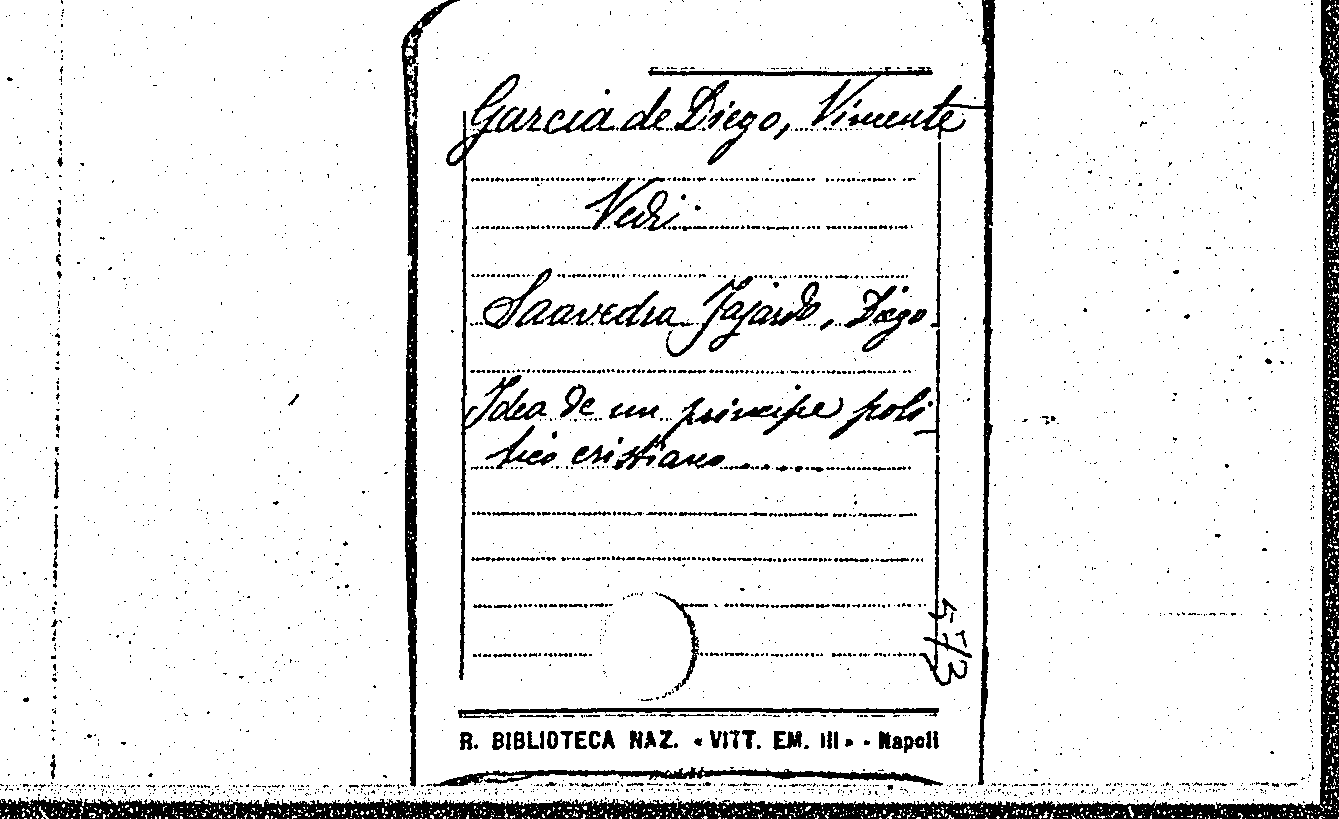 Garcia de Diego, Vincente
Vedi
Saavedra Fajardo, Diego.
Idea de un principe poli-
tico cristiano......
573
R. BIBLIOTECA NAZ. « VITT. EM. III » - Napoli